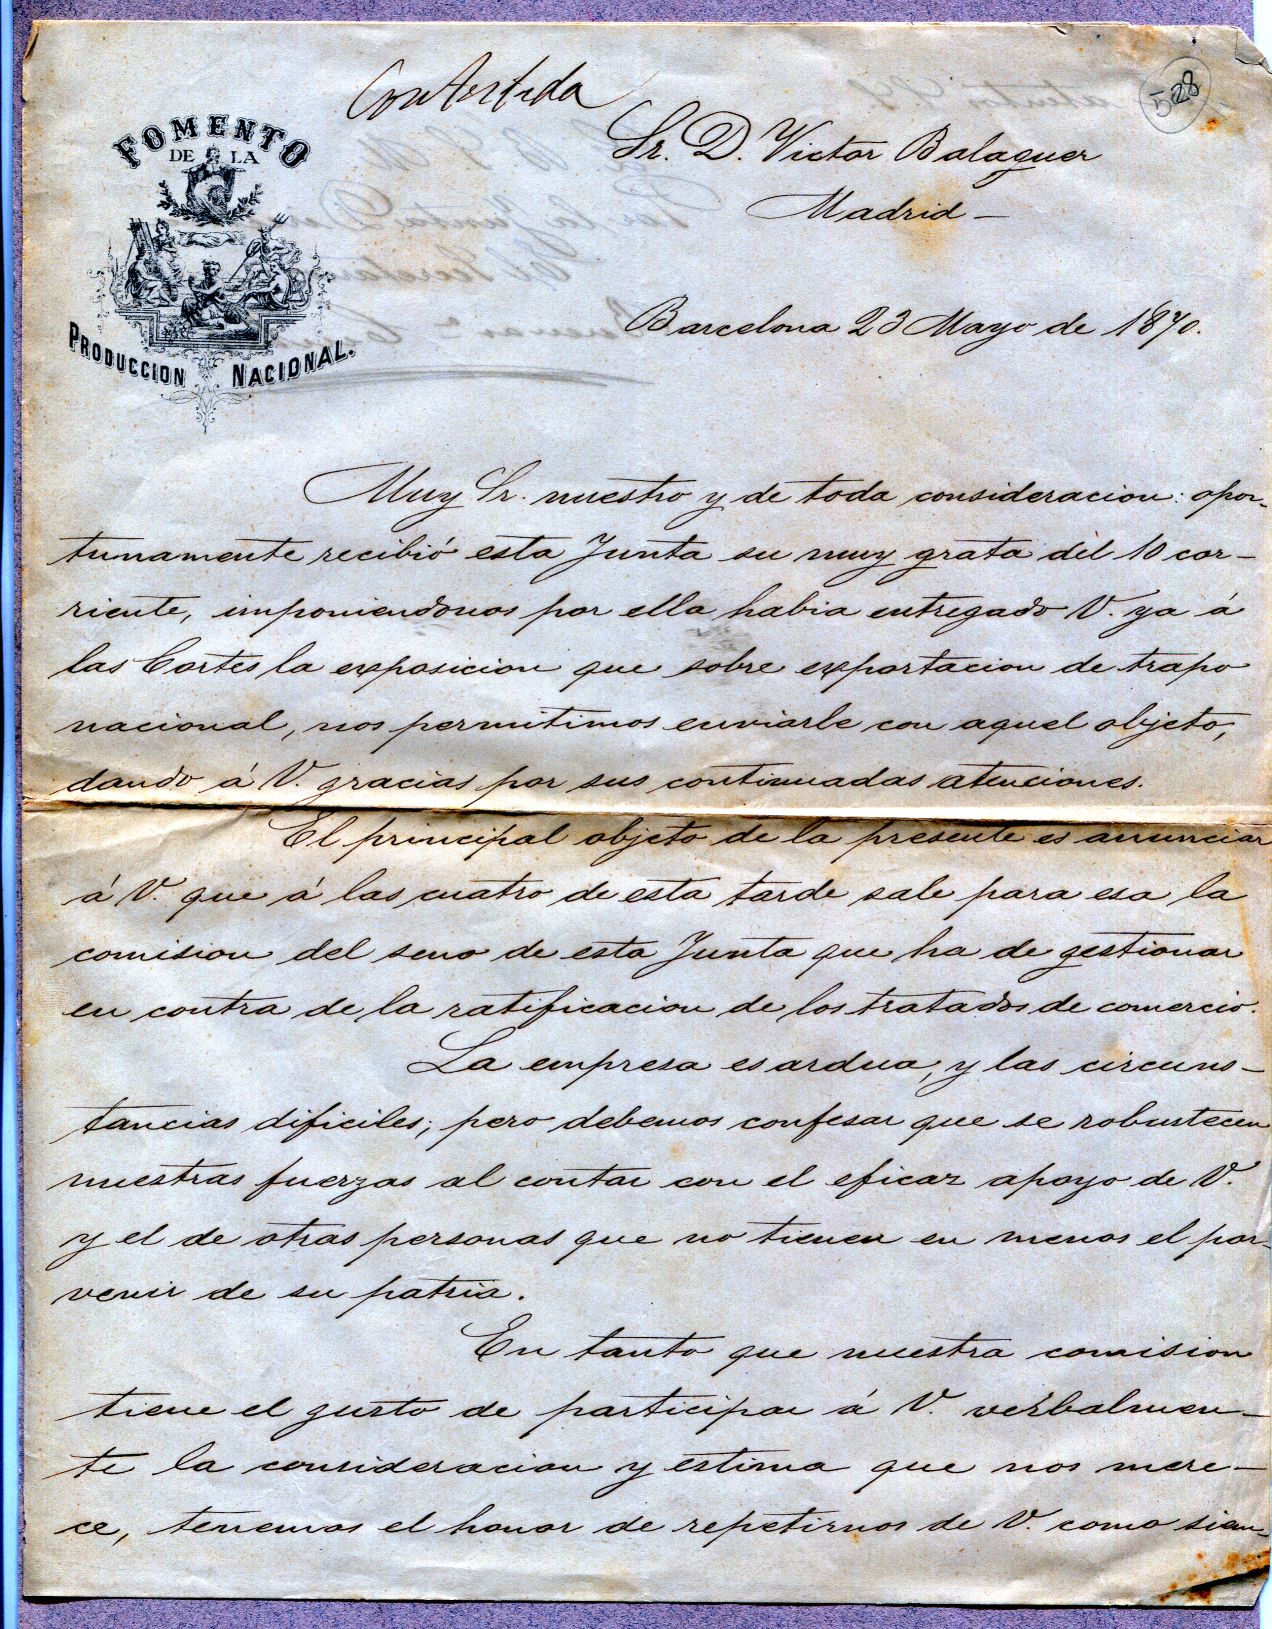 Contestada
528
FOMENTO
DE LA
PRODUCCION NACIONAL.
Sr. D. Victor Balaguer
Madrid —
Barcelona 23 Mayo de 1870.
Muy Sr. nuestro y de toda consideracion: opor-
tunamente recibió esta Junta su muy grata del 10 cor-
riente, imponiendonos por ella habia entregado V. ya á
las Cortes la exposicion que sobre exportacion de trapo
nacional, nos permitimos enviarle con aquel objeto,
dando á V. gracias por sus continuadas atenciones.
El principal objeto de la presente es anunciar
á V. que á las cuatro de esta tarde sale para esa la
comision del seno de esta Junta que ha de gestionar
en contra de la ratificacion de los tratados de comercio.
La empresa es ardua, y las circuns-
tancias dificiles; pero debemos confesar que se robustecen
nuestras fuerzas al contar con el eficaz apoyo de V.
y el de otras personas que no tienen en menos el por-
venir de su patria.
En tanto que nuestra comision
tiene el gusto de participar á V. verbalmen-
te la consideracion y estima que nos mere-
ce, tenemos el honor de repetirnos de V. como siem-